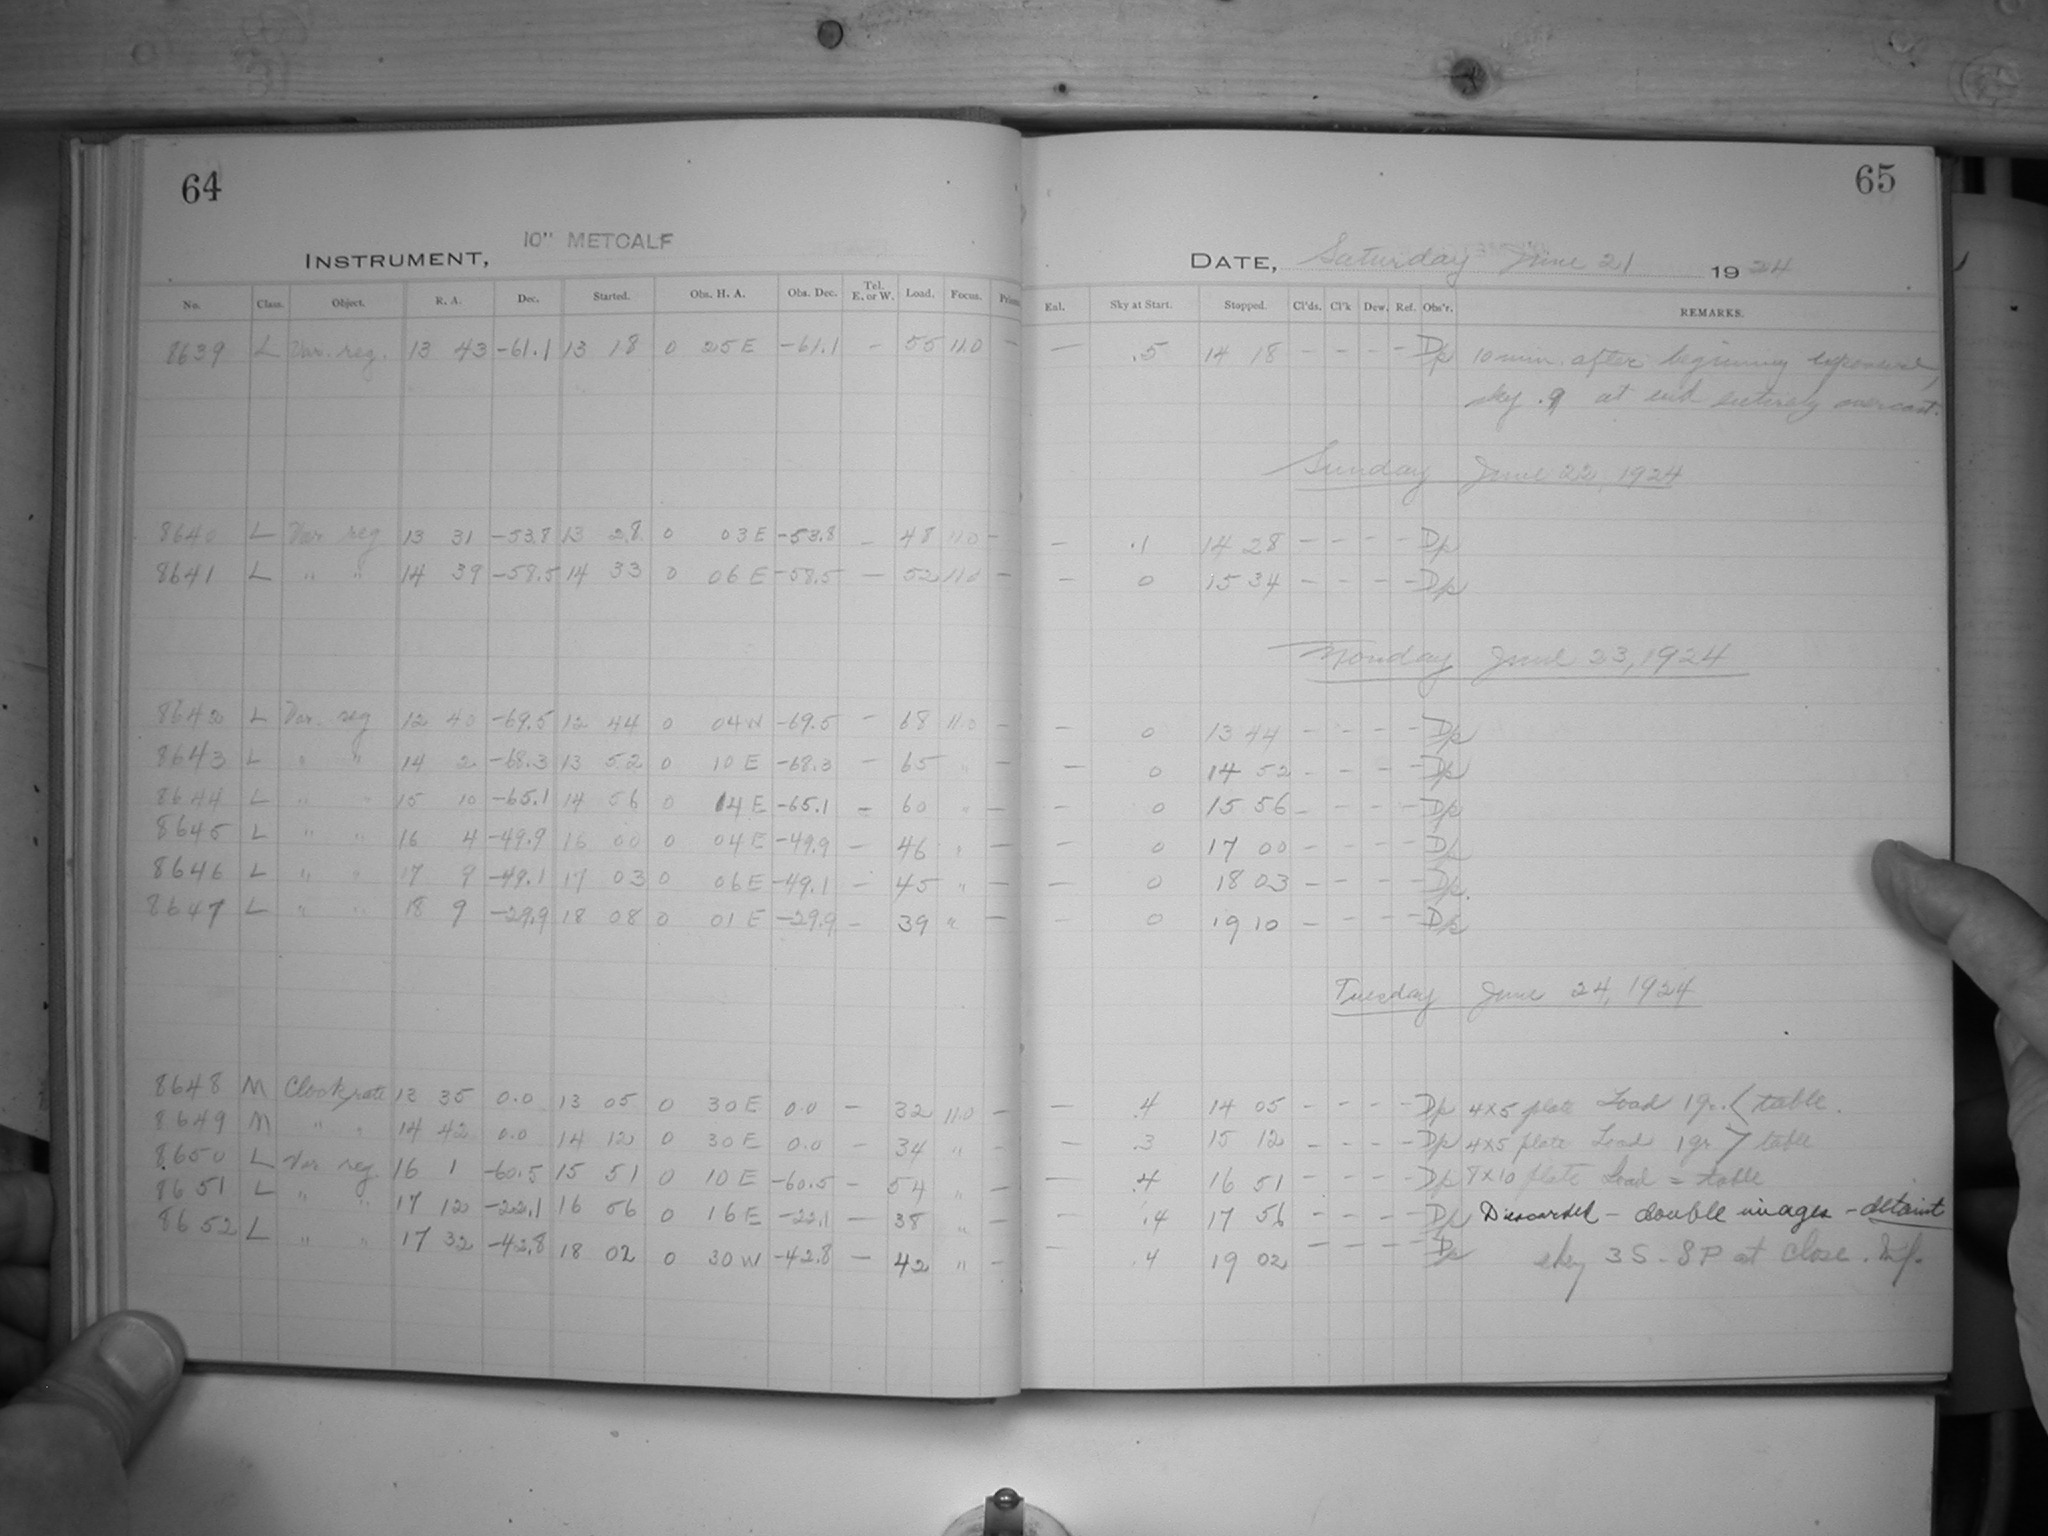 64
10" METCALF
INSTRUMENT,
No. Class. Object. R. A. Dec. Started. Obs. H. A. Obs. Dec. Tel. E. or W. Load. Focus.
8639 L Var. reg. 13 43 -61.1 13 18 0 25 E -61.1 - 55 11.0 -
8640 L Var reg 13 31 -53.8 13 28 0 03 E -53.8 - 48 11.0 -
8641 L " " 14 39 -58.5 14 33 0 06 E -58.5 - 52 11.0 -
8642 L Var. reg 12 40 -69.5 12 44 0 04 W -69.5 - 68 11.0 -
8643 L " " 14 2 -68.3 13 52 0 10 E -68.3 - 65 " -
8644 L " " 15 10 -65.1 14 56 0 14 E -65.1 - 60 " -
8645 L " " 16 4 -49.9 16 00 0 04 E -49.9 - 46 " -
8646 L " " 17 9 -49.1 17 03 0 06 E -49.1 - 45 " -
8647 L " " 18 9 -29.9 18 08 0 01 E -29.9 - 39 " -
8648 M Clock rate 13 35 0.0 13 05 0 30 E 0.0 - 32 11.0 -
8649 M " " 14 42 0.0 14 12 0 30 E 0.0 - 34 " -
8650 L Var reg. 16 1 -60.5 15 51 0 10 E -60.5 - 54 " -
8651 L " " 17 12 -22.1 16 56 0 16 E -22.1 - 38 " -
8652 L " " 17 32 -42.8 18 02 0 30 W -42.8 - 42 " -
65
DATE, Saturday June 21 1924
Enl. Sky at Start. Stopped. Cl'ds. Cl'k Dew. Ref. Obs'r. REMARKS.
- .5 14 18 - - - - Dp 10 min. after beginning exposure,
sky .9 at end entirely overcast.
Sunday June 22, 1924
- .1 14 28 - - - - Dp
- 0 15 34 - - - - Dp
Monday June 23, 1924
- 0 13 44 - - - - Dp
- 0 14 52 - - - - Dp
- 0 15 56 - - - - Dp
- 0 17 00 - - - - Dp
- 0 18 03 - - - - Dp.
- 0 19 10 - - - - Dp
Tuesday June 24, 1924
- .4 14 05 - - - - Dp 4x5 plate Load 1 gr. < table.
- .3 15 12 - - - - Dp 4x5 plate Load 1 gr > table
- .4 16 51 - - - - Dp 8x10 plate Load = table
- .4 17 56 - - - - Dp Discarded - double images -
- .4 19 02 - - - - Dp sky 3S - 8P at close.